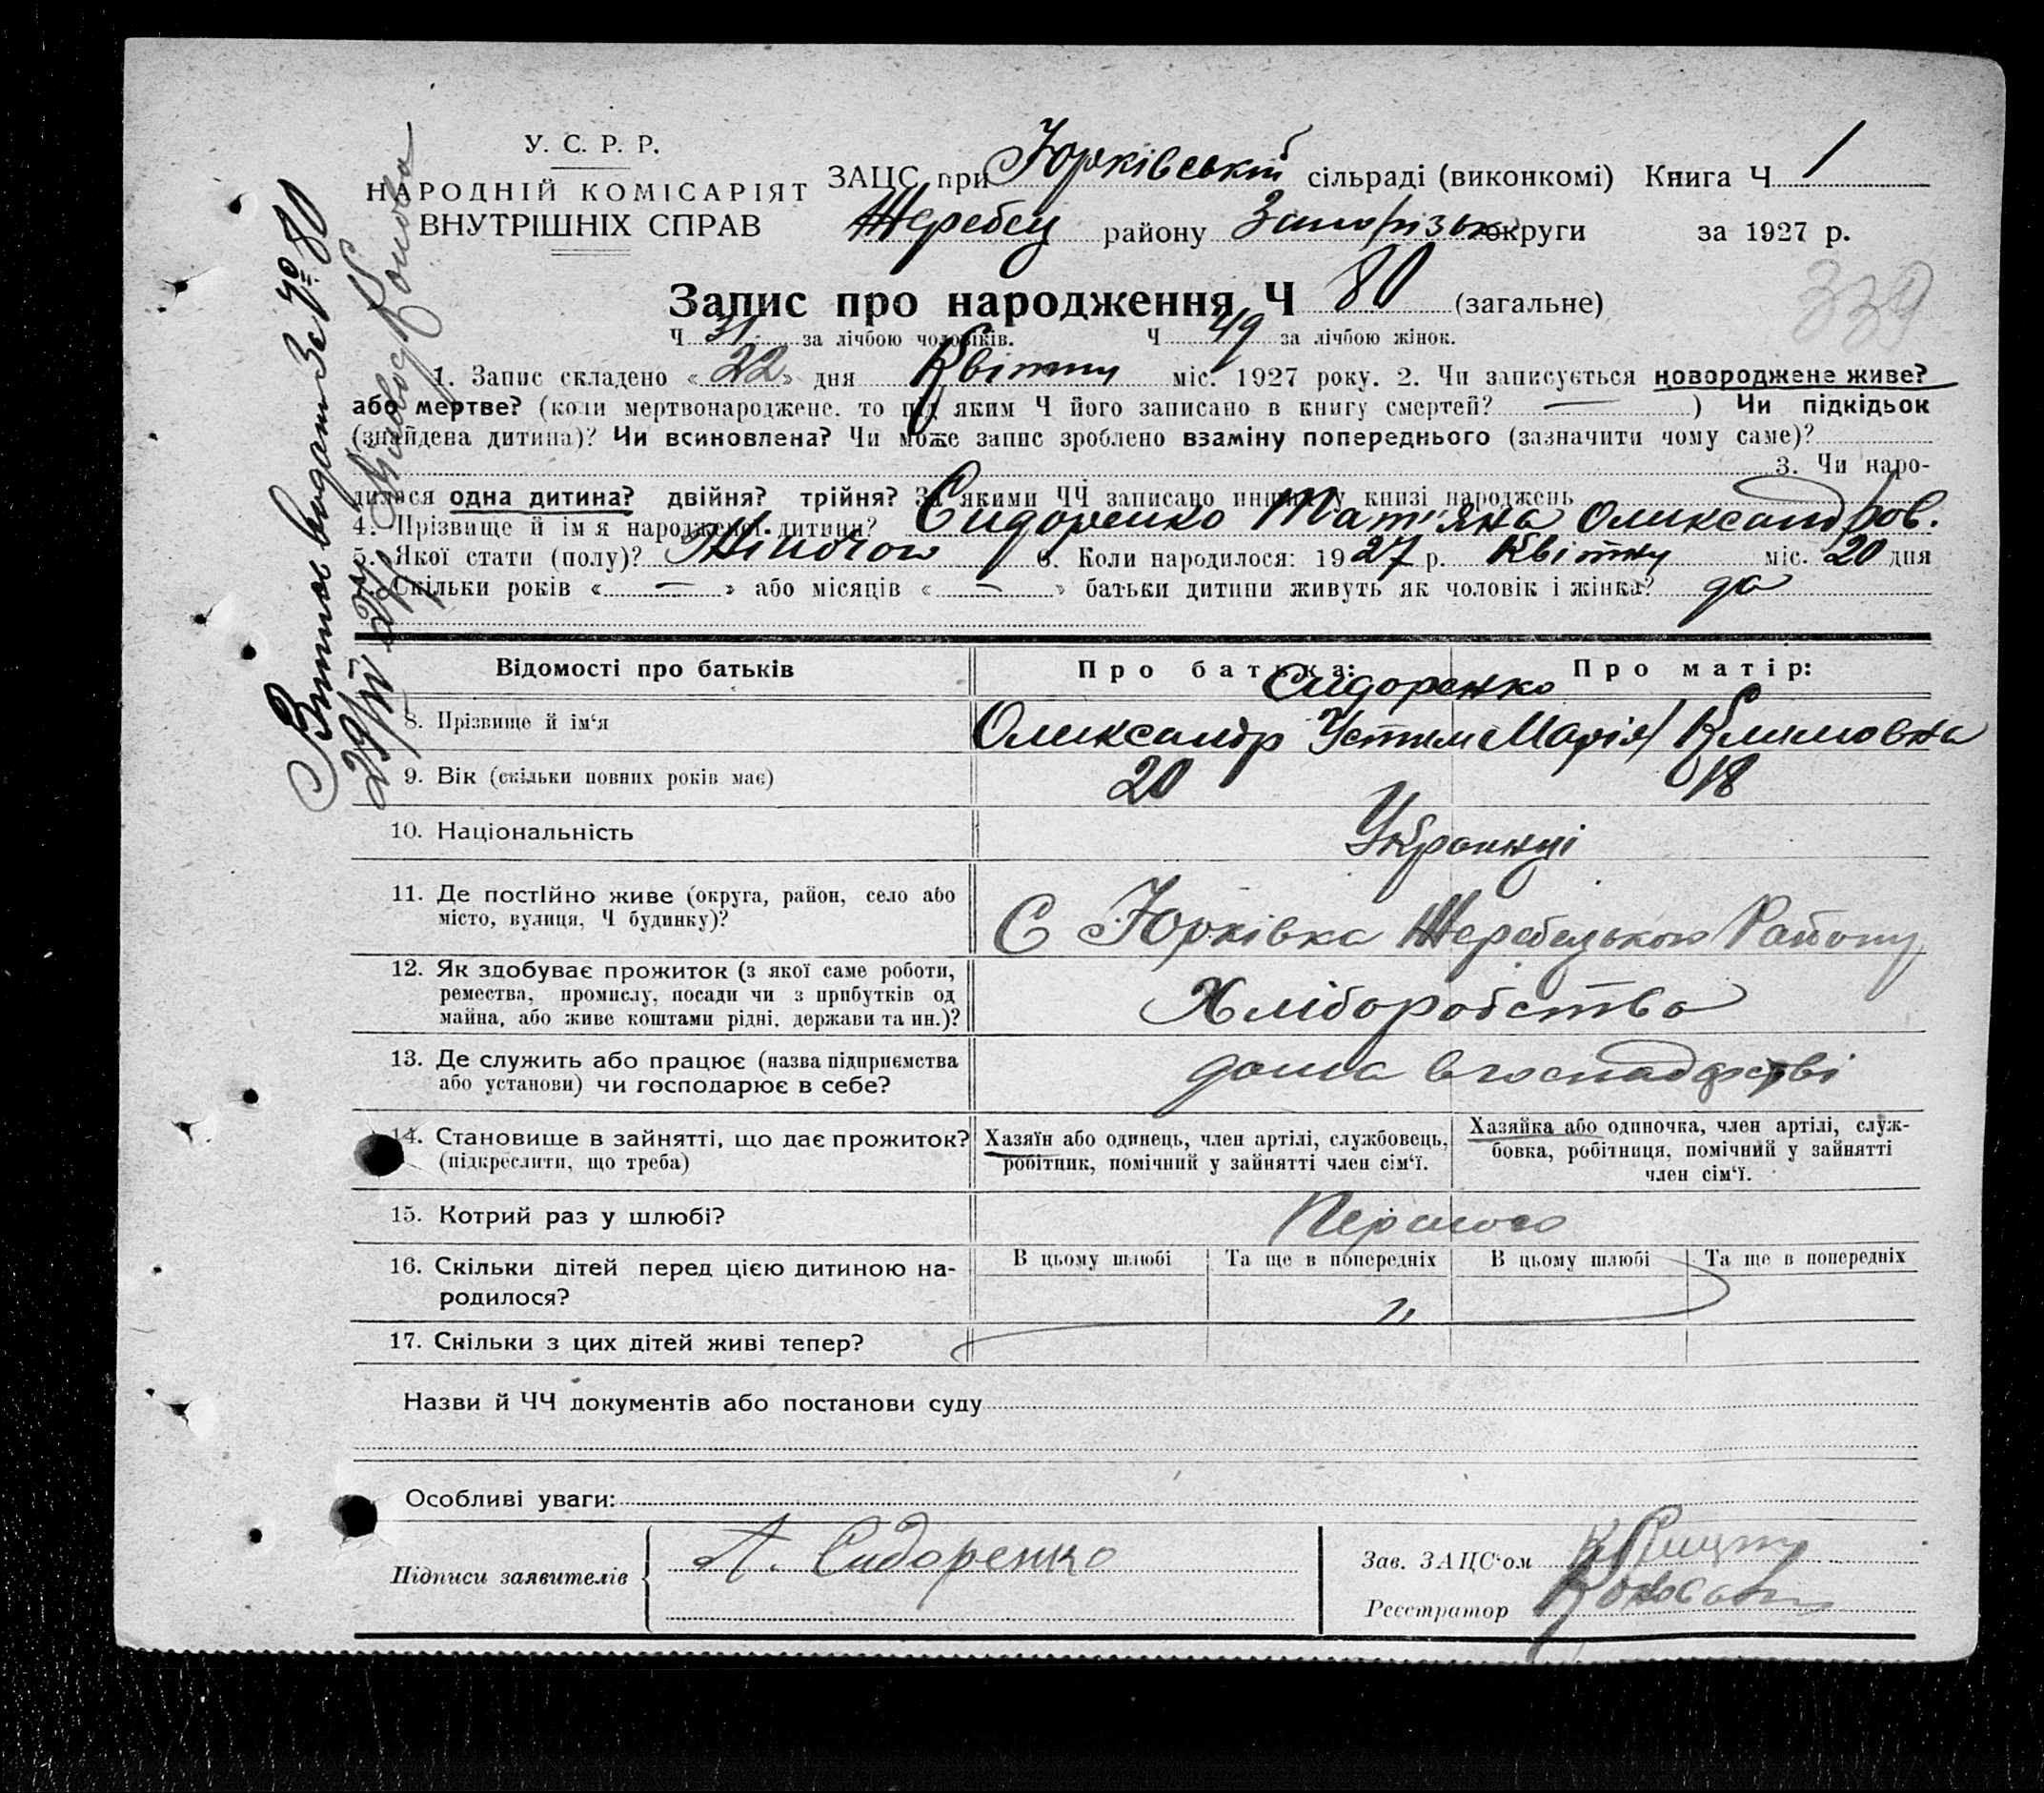 У. С. Р. Р.
НАРОДНІЙ КОМІСАРІЯТ
ВНУТРІШНІХ СПРАВ
ЗАЦС при Юрківській сільраді (виконкомі) Книга Ч 1
Жеребец району Запорізьк округи за 1927 р.
339
Запис про народження Ч 80 (загальне)
Ч 31 за лічбою чоловіків. Ч 49 за лічбою жінок.
1. Запис складено «22» дня Квітня міс. 1927 року. 2. Чи записується новороджене живе?
або мертве? (коли мертвонароджене, то під яким Ч його записано в книгу смертей? — ) Чи підкідьок
(знайдена дитина)? Чи всиновлена? Чи може запис зроблено взаміну попереднього (зазначити чому саме)?
3. Чи наро-
дилося одна дитина? двійня? трійня? За якими ЧЧ записано инших у книзі народжень
4. Прізвище й ім'я народженої дитини? Сидоренко Тат'яна Олександров.
5. Якої стати (полу)? Жіночої 6. Коли народилося: 1927 р. Квітня міс. 20 дня
7. Скільки років « — » або місяців « — » батьки дитини живуть як чоловік і жінка? да
Витяг видат за № 80
Відомості про батьків
Про батька:
Про матір:
Сидоренко
8. Прізвище й ім‘я
Олександр Устим Марія Климовна
9. Вік (скільки повних років має)
20 18
10. Національність
Українці
11. Де постійно живе (округа, район, село або
місто, вулиця, Ч будинку)?
С Юрківка Жеребецького Району
12. Як здобуває прожиток (з якої саме роботи,
ремества, промислу, посади чи з прибутків од
майна, або живе коштами рідні, держави та ин.)?
Хліборобство
13. Де служить або працює (назва підприємства
або установи) чи господарює в себе?
дома в господарстві
14. Становище в зайнятті, що дає прожиток?
(підкреслити, що треба)
Хазяїн або одинець, член артілі, службовець,
робітник, помічний у зайнятті член сім‘ї.
Хазяйка або одиночка, член артілі, служ-
бовка, робітниця, помічний у зайнятті
член сім‘ї.
15. Котрий раз у шлюбі?
Першого
16. Скільки дітей перед цією дитиною на-
родилося?
В цьому шлюбі Та ще в попередніх В цьому шлюбі Та ще в попередніх
17. Скільки з цих дітей живі тепер?
Назви й ЧЧ документів або постанови суду
Особливі уваги:
Підписи заявителів
А. Сидоренко
Зав. ЗАЦС‘ом
Реєстратор